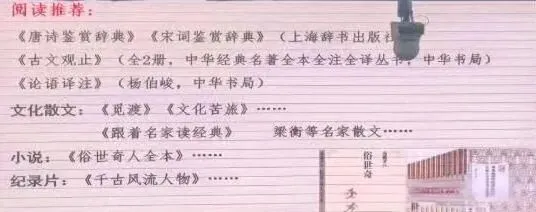 阅读推荐:
《唐诗鉴赏辞典》《宋词鉴赏辞典》(上海辞书出版社
《古文观止》(全2册,中华经典名著全本全注全译丛书,中华书局)
《论语译注》(杨伯峻,中华书局)
文化散文:《觅渡》《文化苦旅》……
《跟着名家读经典》 梁衡等名家散文……
小说:《俗世奇人全本》……
纪录片:《千古风流人物》……
俗世奇